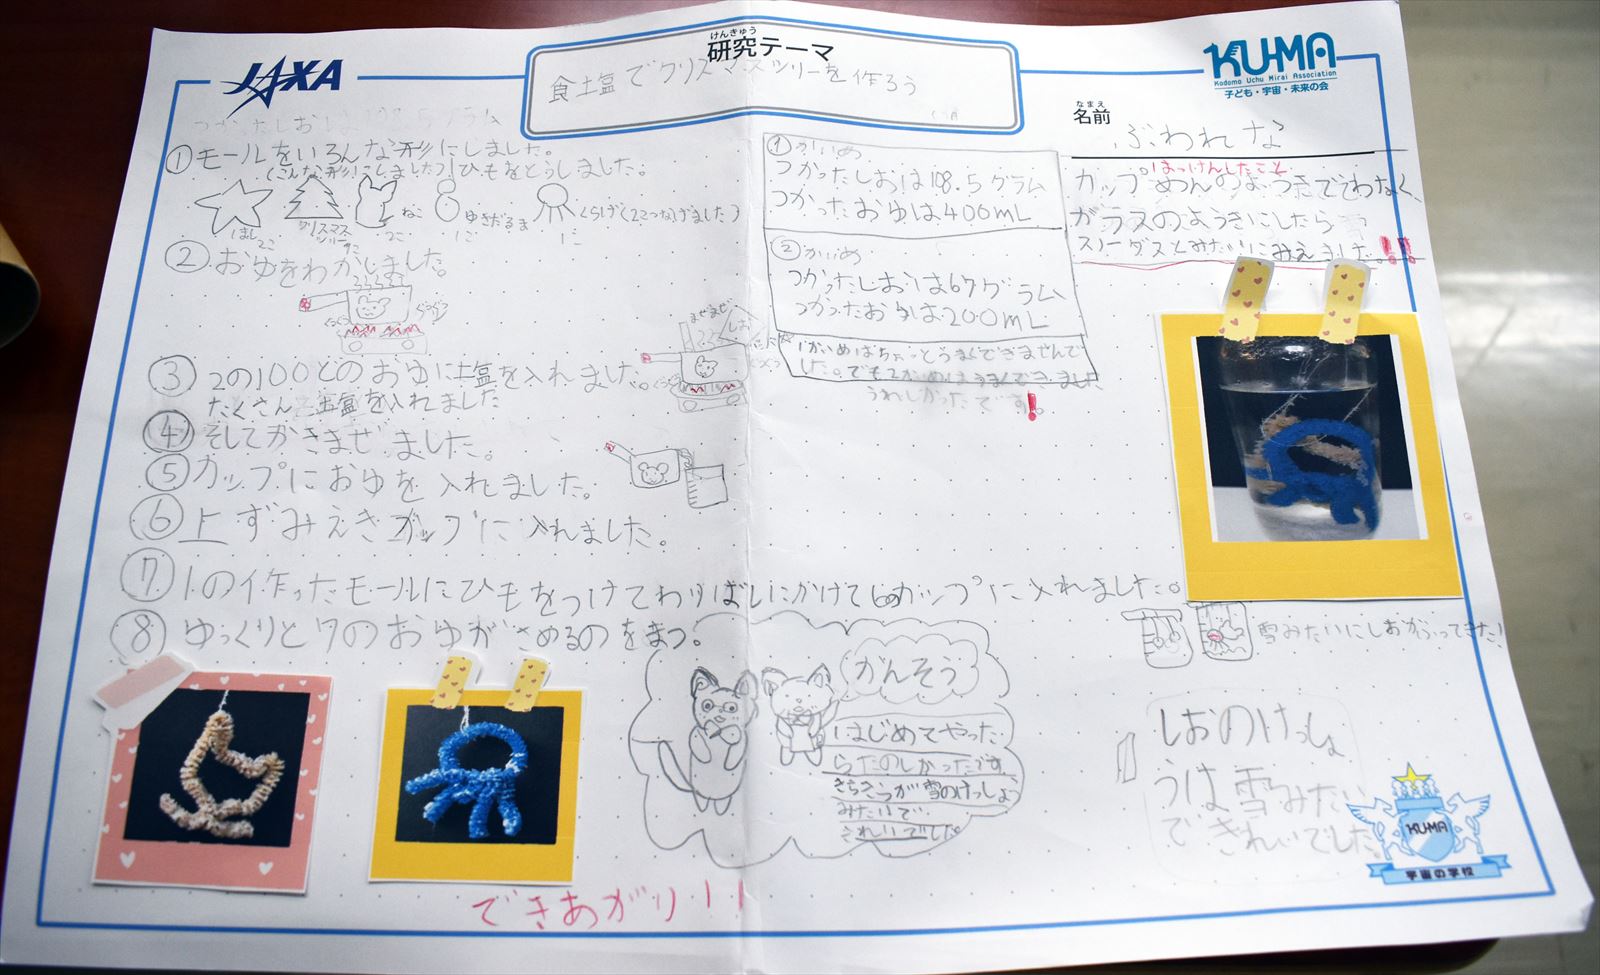 JAXA
けんきゅう
研究テーマ
食塩でクリスマスツリーを作ろう
KU-MA
Kodomo Uchu Mirai Association
子ども・宇宙・未来の会
なまえ
名前
ぶわれな
つかたしおは108.5グラム
①モールをいろんな形にしました。
(こんな形にしました)ひもをとうしました。
ほし
クリスマスツリー
ねこ
ゆきだるま
くらげ(2こつなげました)
②おゆをわかしました。
ぐつぐつ
③2の100どのおゆに塩を入れました。
たくさん塩を入れました
まぜまぜ
しお
④そしてかきまぜました。
⑤カップにおゆを入れました。
⑥上ずみえきカップに入れました。
⑦1の作ったモールにひもをつけてわりばしにかけて⑥のカップに入れました。
⑧ゆっくりと7のおゆがさめるのをまつ。
①かいめ
つかったしおは108.5グラム
つかったおゆは400mL
②かいめ
つかったしおは67グラム
つかったおゆは200mL
1かいめはちょっとうまくできませんで
した。でも2かいめはうまくできました
うれしかったです!
はっけんしたこと
カップめんのようきでわなく
ガラスのようきにしたら
スノードームみたいにみえました!!
雪みたいにしおがふってきた!
かんそう
はじめてやった
らたのしかったです。
きらきらが雪のけっしょう
みたいで
きれいでした。
しおのけっしょ
うは雪みたい
できれいでした。
できあがり!!
KU-MA
宇宙の学校